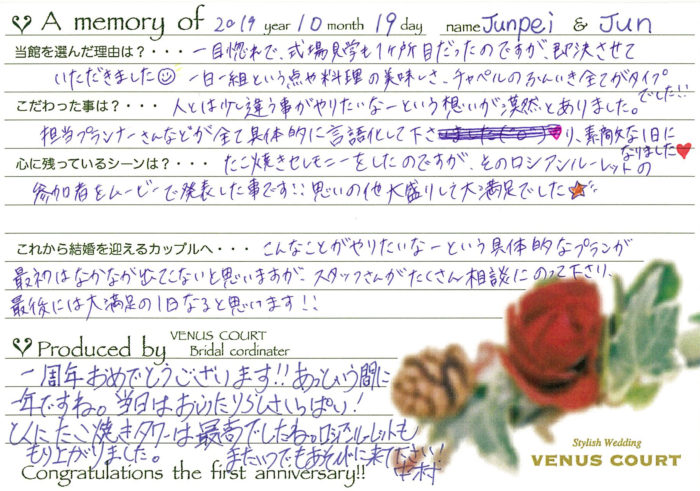 A memory of 2019 year 10 month 19 day name Junpei & Jun
当館を選んだ理由は？・・・ 一目惚れで、式場見学も1ヶ所目だったのですが、即決させて
いただきました☺ 一日一組という点や料理の美味しさ、チャペルのふんいき全てがタイプ
でした!!
こだわった事は？・・・ 人とは少し違う事がやりたいなーという想いが漠然とありました。
担当プランナーさんなどが全て具体的に言語化して下さり、素敵な1日に
なりました♥
心に残っているシーンは？・・・ たこ焼きセレモニーをしたのですが、そのロシアンルーレットの
参加者をムービーで発表した事です!! 思いの他大盛りして大満足でした★
これから結婚を迎えるカップルへ・・・ こんなことがやりたいなーという具体的なプランが
最初はなかなか出てこないと思いますが、スタッフさんがたくさん相談にのって下さり、
最後には大満足の1日なると思います!!
Produced by VENUS COURT
Bridal cordinater
一周年おめでとうございます!! あっという間に
一年ですね。当日はおふたりらしさいっぱい!
とくにたこ焼きタワーは最高でしたね。ロシアンルーレットも
もり上がりました。 またいつでもあそびに来て下さい! 中村
Congratulations the first anniversary!!
Stylish Wedding
VENUS COURT